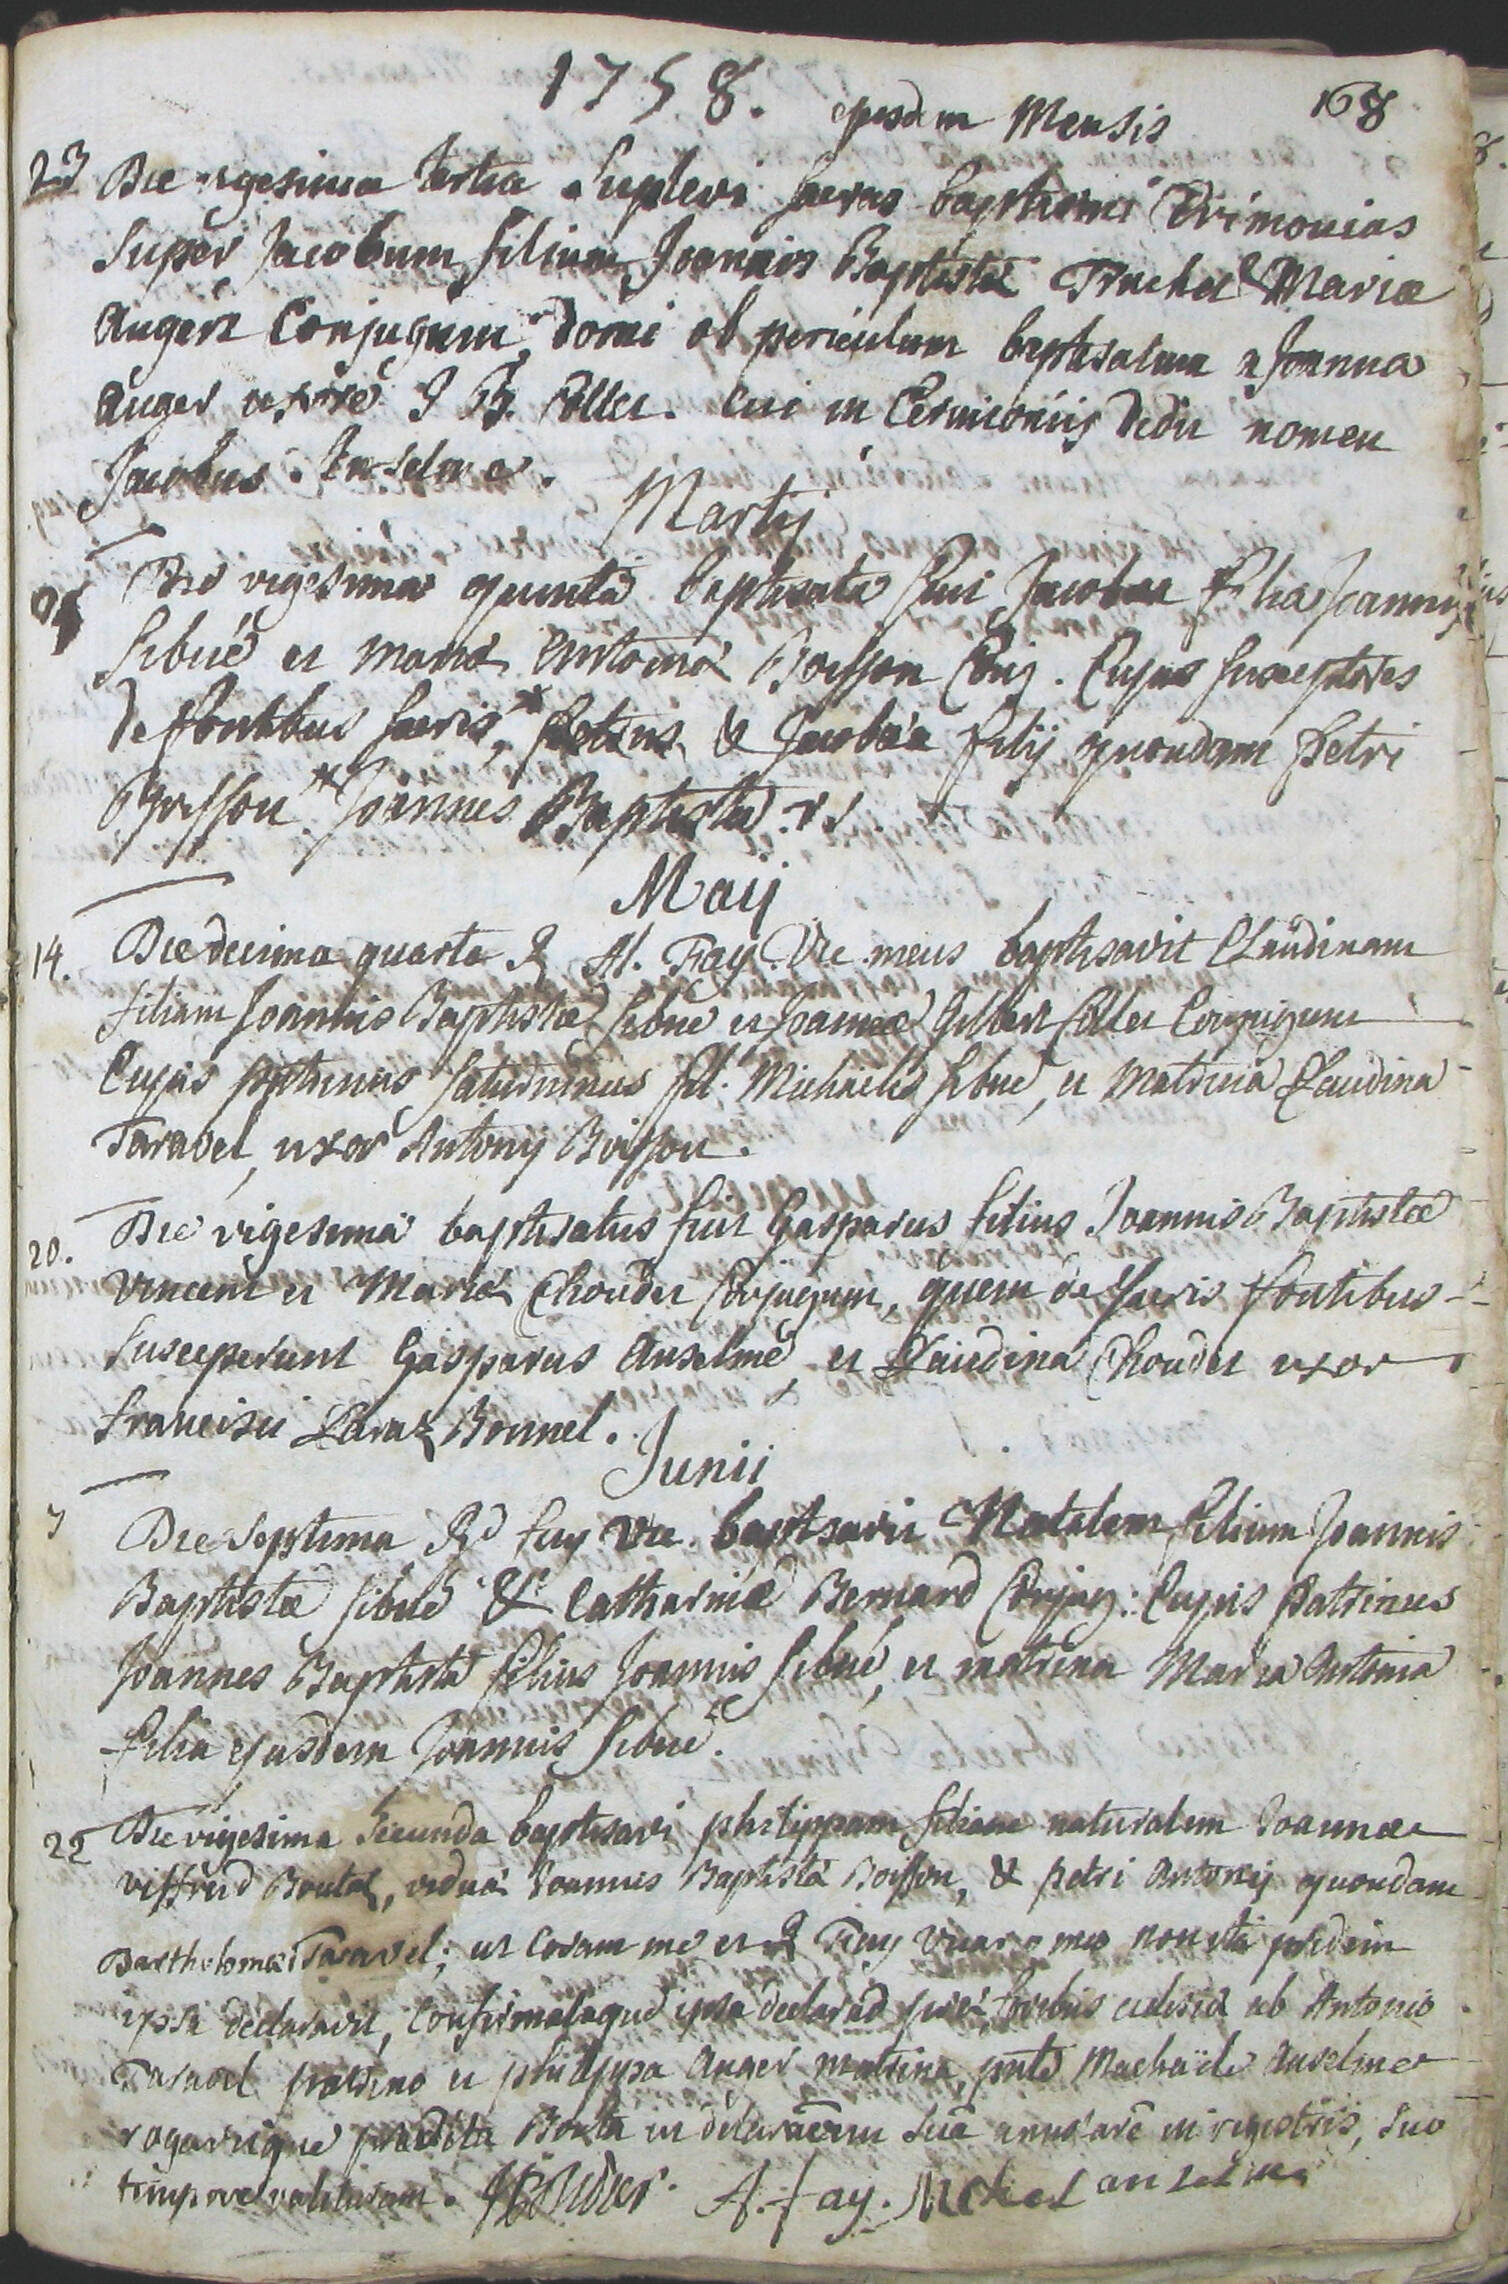 1758.
ejusdem Mensis
168
23 Die vigesima tertia suplevi sacras baptismi Cerimonias
super Jacobum filium Joannis Baptistæ Truchet & Mariæ
Auger Conjugum, domi ob periculum baptisatum a Joanna
Auger uxore J B. Collet. cui in Cerimoniis dedit nomen
Jacobus Anselme.
Martij
25 Die vigesima quinta baptisata fuit Jacobæa filia Joannis
Sibué et Mariæ Antoniæ Boisson Conj. Cujus susceptores
de fontibus sacris,* petrus & Jacobæa filij quondam petri
Boisson. * Joannes Baptista
Maij
14. Die decima quarta R. Al. Fay Vic. meus baptisavit Claudinam
filiam Joannis Baptistæ Sibué et Joannæ Gilbert Collet Conjugum
Cujus patrinus Saturninus fil. Michaelis Sibué, et Matrina Claudina
Taravel, uxor Antonij Boisson.
20. Die vigesima baptisatus fuit Gasparus filius Joannis Baptistæ
Vincent et Mariæ Choudet Conjugum, quem de sacris fontibus
susceperunt Gasparus Anselme, et Claudina Choudet uxor
francisci Laraz Bonnel.
Junii
7 Die septima Rd fay Vic. baptisavit Natalem filium Joannis
Baptistæ Sibué & Catharinæ Bernard Conjug: Cujus Patrinus
Joannes Baptista filius Joannis Sibué, et matrina Maria Antonia
filia ejusdem Joannis Sibué.
22 Die vigesima secunda baptisavi philippam filiam naturalem Joannæ
Viffred Boutaz, viduæ Joannis Baptistæ Boisson, & petri Antonij quondam
Bartholomæi Taravel; ut coram me et R Fay Vicario meo non ita pridem
ipsa declaravit, Confirmataque ipsa foribus ab Antonio
Taravel patrino et philippa Auger matrina, pnte Michaële Anselme
rogavitque prædicta Bouta ut suã in registris, suo
tempore valituram. A. fay. Michel anselme